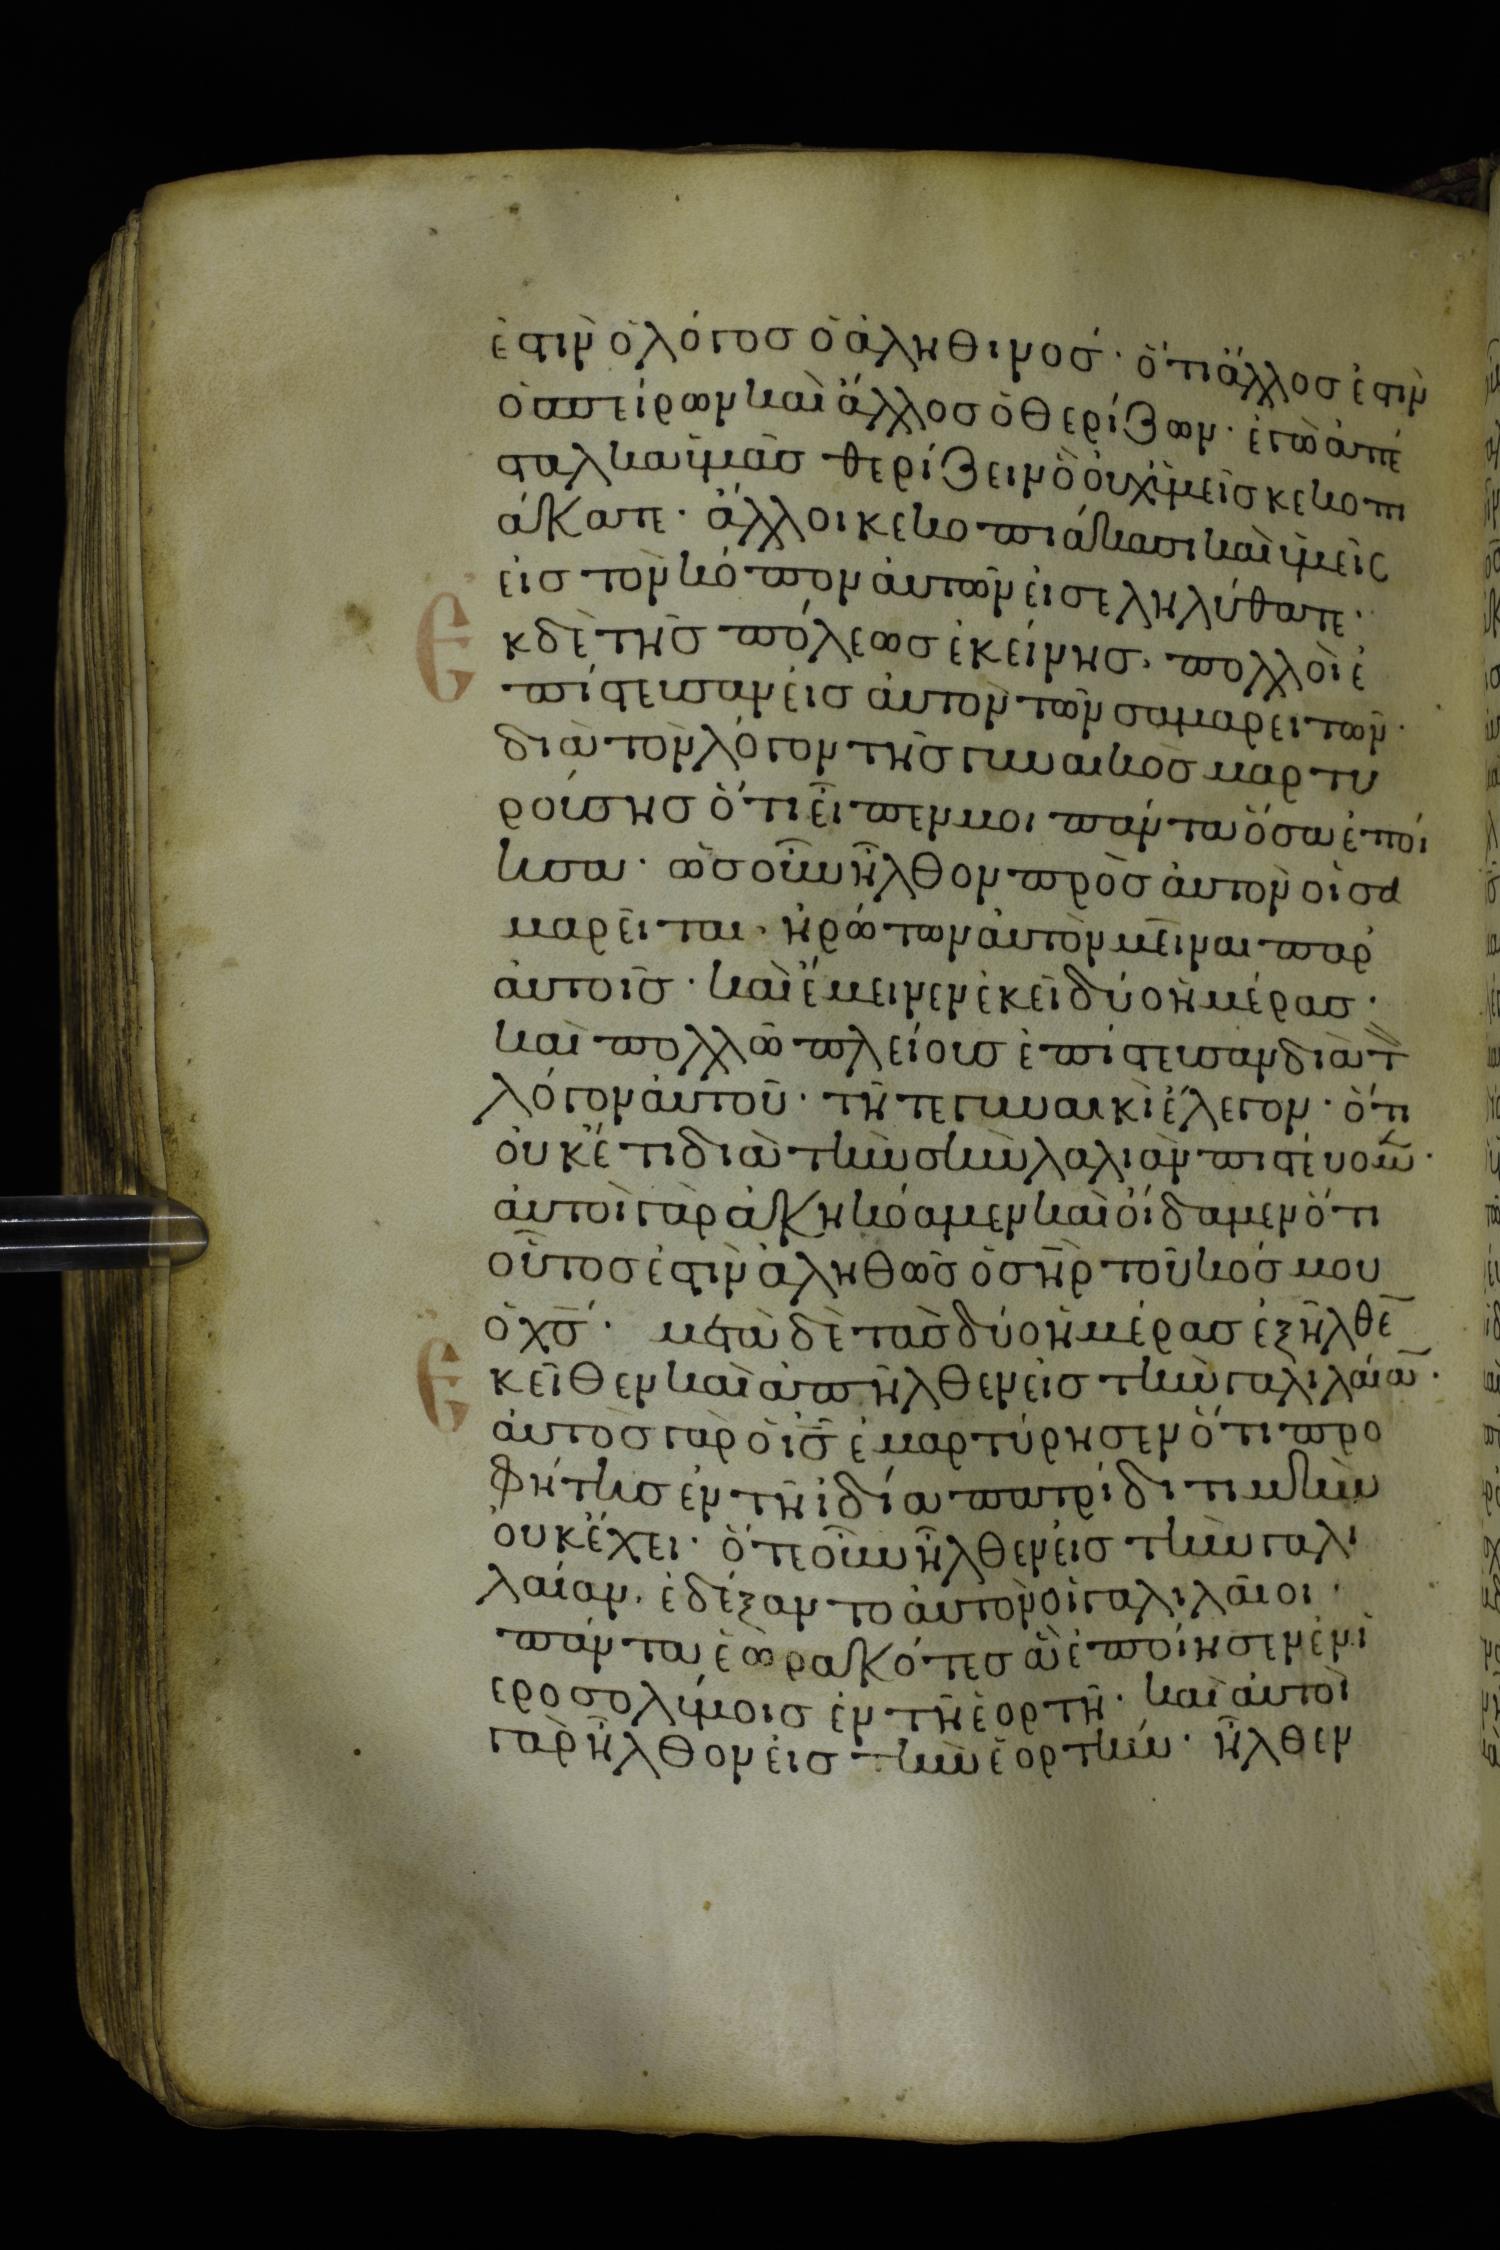 ἐστὶν ὁ λόγοσ ὁ ἀληθινόσ· ὅτι ἄλλοσ ἐστὶν
ὁ σπείρων καὶ ἄλλοσ ὁ θερίζων· ἐγὼ ἀπέ
σταλκα ὑμᾶσ θερίζειν ὃ οὐχ ὑμεῖσ κεκοπι
άκατε· ἄλλοι κεκοπιάκασι καὶ ὑμεῖς
εἰσ τὸν κόπον αὐτῶν εἰσεληλύθατε·
Ε κ δὲ τῆσ πόλεωσ ἐκείνησ, πολλοὶ ἐ
πίστευσαν εἰσ αὐτὸν τῶν σαμαρειτῶν·
διὰ τὸν λόγον τῆσ γυναικὸσ μαρτυ
ρούσησ ὅτι εἶπεν μοι πάντα ὅσα ἐποί
ησα· ὡσ οὖν ἦλθον πρὸσ αὐτὸν οἱ σα
μαρεῖται, ἠρώτων αὐτὸν μεῖναι παρ
αὐτοῖσ· καὶ ἔμεινεν ἐκεῖ δύο ἡμέρασ·
καὶ πολλῶ πλείουσ ἐπίστευσαν διὰ τ̀
λόγον αὐτοῦ· τῆ τε γυναικὶ ἔλεγον· ὅτι
οὐκέτι διὰ τὴν σὴν λαλιὰν πιστεύομ̅·
αὐτοὶ γὰρ ἀκηκόαμεν καὶ οἴδαμεν ὅτι
οὗτοσ ἐστὶν ἀληθῶσ ὁ σ̅η̅ρ̅ τοῦ κόσμου
ὁ χ̅σ̅· μετὰ δὲ τὰσ δύο ἡμέρασ ἐξῆλθε̅
Ε κεῖθεν καὶ ἀπῆλθεν εἰσ τὴν γαλιλαία̅·
αὐτὸσ γὰρ ὁ ι̅σ̅ ἐμαρτύρησεν ὅτι προ
φήτησ ἐν τῆ ἰδία πατρίδι τιμὴν
οὐκ ἔχει· ὅτε οὖν ἦλθεν εἰσ τὴν γαλι
λαίαν, ἐδέξαντο αὐτὸν οἱ γαλιλαῖοι·
πάντα ἑωρακότεσ ἃ ἐποίησεν ἐν ἱ
εροσολύμοισ ἐν τῆ ἑορτῆ· καὶ αὐτοὶ
γὰρ ἦλθον εἰσ τὴν ἑορτήν· ἦλθεν